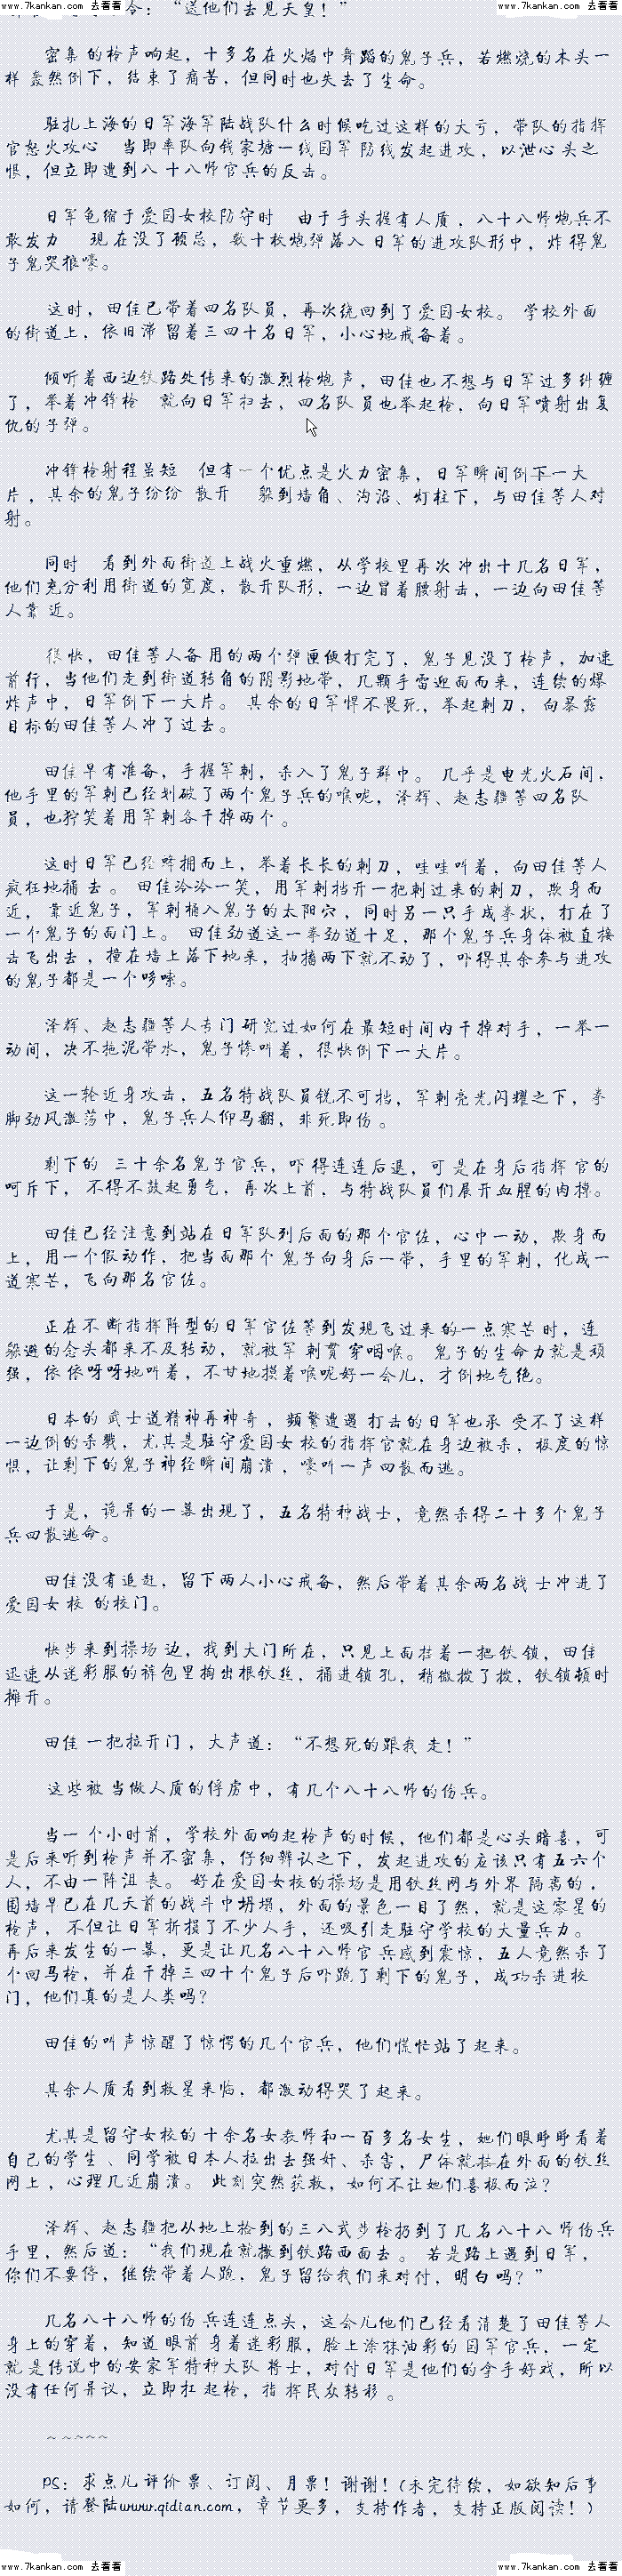 www.7kankan.com 去看看
www.7kankan.com 去看看
令：“送他们去见天皇！”
密集的枪声响起，十多名在火焰中舞蹈的鬼子兵，若燃烧的木头一
样 轰然倒下，结束了痛苦，但同时也失去了生命。
驻扎上海的日军海军陆战队什么时候吃过这样的大亏，带队的指挥
官怒火攻心 当即率队向钱家塘一线国军 防线发起进攻，以泄心头之
恨，但立即遭到八十八师官兵的反击。
日军龟缩于爱国女校防守时 由于手头握有人质，八十八师炮兵不
敢发力 现在没了顾忌，数十枚炮弹落入日军的进攻队形中，炸得鬼
子鬼哭狼嚎。
这时，田佳已带着四名队员，再次绕回到了爱国女校。 学校外面
的街道上，依旧滞 留着三四十名日军，小心地戒备着。
倾听着西边铁路处传来的激烈枪炮声，田佳也不想与日军过多纠缠
了，举着冲锋枪 就向日军扫去，四名队 员也举起枪，向日军喷射出复
仇的子弹。
冲锋枪射程虽短 但有一个优点是火力密集，日军瞬间倒下一大
片，其余的鬼子纷纷 散开 躲到墙角、沟沿、灯柱下，与田佳等人对
射。
同时 看到外面街道上战火重燃，从学校里再次冲出十几名日军，
他们充分利用街道的宽度，散开队形，一边冒着腰射击，一边向田佳等
人靠 近。
很快，田佳等人备用的两个弹匣便打完了，鬼子见没了枪声，加速
前行，当他们走到街道转角的阴影地带，几颗手雷迎面而来，连续的爆
炸声中，日军倒下一大片。 其余的日军悍不畏死，举起刺刀， 向暴露
目标的田佳等人冲了过去。
田佳早有准备，手握军刺，杀入了鬼子群中。 几乎是电光火石间，
他手里的军刺已经划破了两个鬼子兵的喉咙，泽辉、赵志疆等四名队
员，也狞笑着用军刺各干掉两个。
这时日军已经蜂拥而上，举着长长的刺刀，哇哇叫着，向田佳等人
疯狂地捅去 。 田佳冷冷一笑，用军刺挡开一把刺过来的刺刀，欺身而
近， 靠近鬼子，军刺桶入鬼子的太阳穴，同时另一只手成拳状，打在了
一个鬼子的面门上。 田佳劲道这一拳劲道十足，那个鬼子兵身体被直接
击飞出去，撞在墙上落下地来，抽搐两下就不动了，吓得其余参与进攻
的鬼子都是一个哆嗦。
泽辉、赵志疆等人专门研究过如何在最短时间内干掉对手，一举一
动间，决不拖泥带水，鬼子惨叫着，很快倒下一大片。
这一轮近身攻击，五名特战队员锐不可挡，军刺亮光闪耀之下，拳
脚劲风激荡中，鬼子兵人仰马翻，非死即伤。
剩下的 三十余名鬼子官兵，吓得连连后退，可是在身后指挥官的
呵斥下， 不得不鼓起勇气，再次上前，与特战队员们展开血腥的肉搏。
田佳已经注意到站在日军队列后面的那个官佐，心中一动，欺身而
上，用一个假动作，把当面那个 鬼子向身后一带，手里的军刺，化成一
道寒芒，飞向那名官佐。
正在不断指挥阵型的日军官佐等到发现飞过来的一点寒芒时，连
躲避的念头都来不及转动，就被军 刺贯 穿咽喉。 鬼子的生命力就是顽
强，依依呀呀地叫着，不甘地摸着喉咙好一会儿，才倒地气绝。
日本的 武士道精神再神奇，频繁遭遇 打击的日军也承 受不了这样
一边倒的杀戮，尤其是驻守爱国女校的指挥官就在身边被杀，极度的惊
惧，让剩下的鬼子神经瞬间崩溃，嚎叫一声四散而逃。
于是，诡异的一幕出现了，五名特种战士，竟然杀得二十多个鬼子
兵四散逃命。
田佳没有追赶，留下两人小心戒备，然后带着其余两名战 士冲进了
爱国女校 的校门。
快步来到操场边，找到大门所在，只见上面挂着一把铁锁，田佳
迅速从迷彩服的裤包里掏出根铁丝，捅进锁孔，稍微拨了拨，铁锁顿时
摊开。
田佳 一把拉开门，大声道：“不想死的跟我 走！”
这些被当做人质的俘虏中，有几个八十八师的伤兵。
当一 个小时前，学校外面响起枪声的时候，他们都是心头暗喜，可
是后来听到枪声并不密集，仔细辨认之下，发起进攻的应该只有五六个
人，不由一阵沮丧。 好在爱国女校的操场是用铁丝网与外界隔离的，
围墙早已在几天前的战斗中坍塌，外面的景色一目了然，就是这零星的
枪声， 不但让日军折损了不少人手，还吸引走驻守学校的大量兵力。
再后来发生的一幕，更是让几名八十八师官兵感到震惊，五人竟然杀了
个回马枪，并在干掉三四十个鬼子后吓跑了剩下的鬼子，成功杀进校
门，他们真的是人类吗？
田佳的叫声惊醒了惊愕的几个官兵，他们慌忙站了起来。
其余人质看到救星来临，都激动得哭了起来。
尤其是留守女校的十余名女教师和一百多名女生，她们眼睁睁看着
自己的学生、同学被日本人拉出去强奸、杀害，尸体就挂在外面的铁丝
网上，心理几近崩溃。 此刻突然获救，如何不让她们喜极而泣？
泽辉、赵志疆把从地上捡到的三八式步枪扔到了几名八十八师伤兵
手里，然后道：“我们现在就撤到铁路西面去。 若是路上遇到日军，
你们不要停，继续带着人跑，鬼子留给我们来对付，明白吗？”
几名八十八师的伤兵连连点头，这会儿他们已经看清楚了田佳等人
身上的穿着，知道眼前 身着迷彩服，脸上涂抹油彩的国军官兵，一定
就是传说中的安家军特种大队 将士，对付日军是他们的拿手好戏，所以
没有任何异议，立即扛起枪，指挥民众转移。
～～～～～
PS：求点儿评价票、订阅、月票！谢谢！（未完待续，如欲知后事
如何，请登陆www.qidian.com，章节更多，支持作者，支持正版阅读！）
www.7kankan.com 去看看
www.7kankan.com 去看看